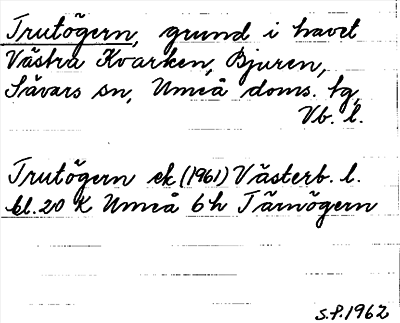 Trutögern, grund i havet
Västra Kvarken, Bjuren,
Sävars sn, Umeå doms. tg,
Vb. l.
Trutögern ek (1961) Västerb. l.
bl. 20 K Umeå 6h Tärnögern
S.P. 1962